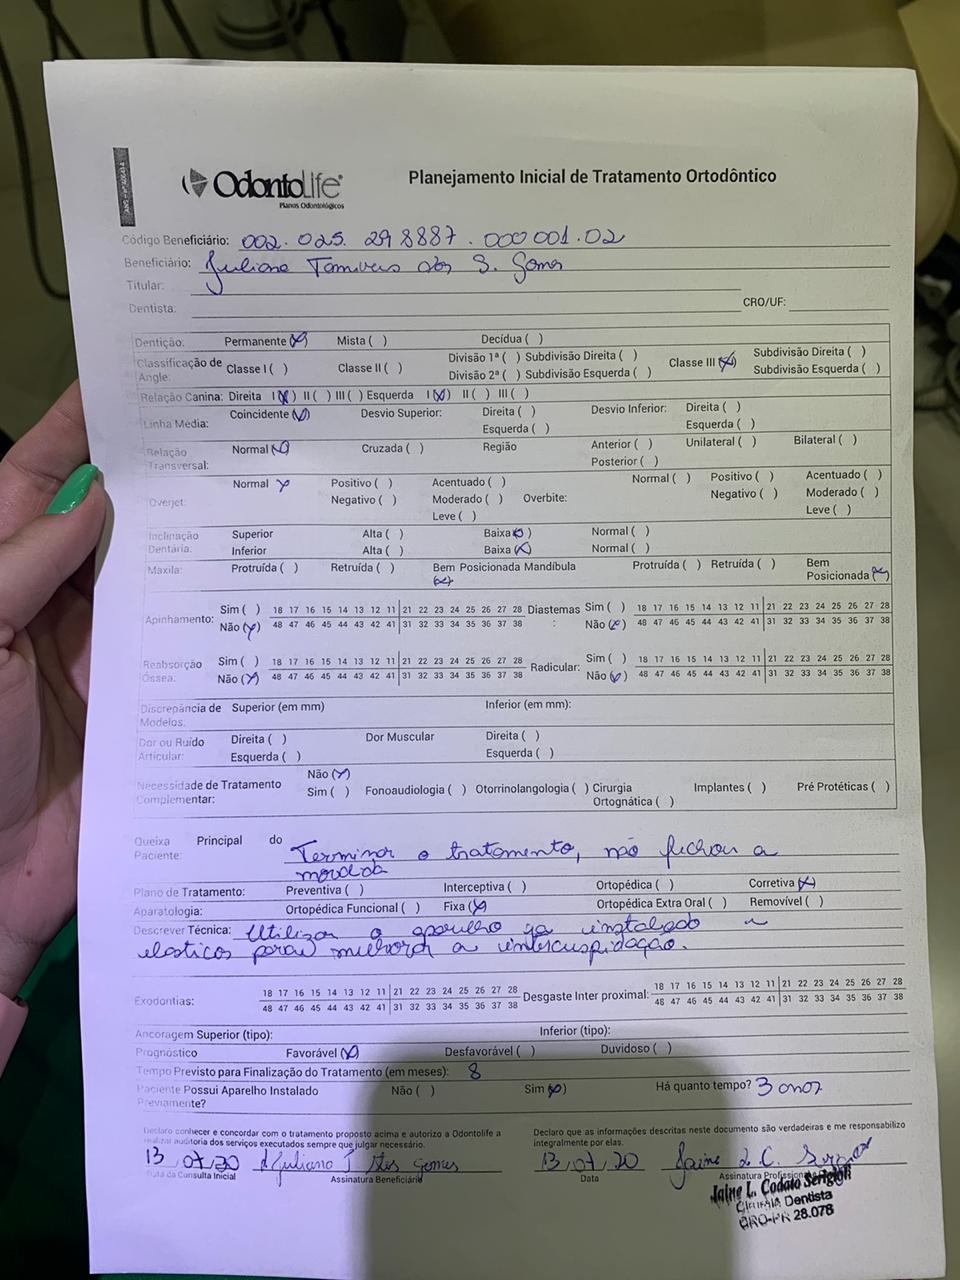 OdontoLife
Planos Odontológicos
Planejamento Inicial de Tratamento Ortodôntico
Código Beneficiário: 002.025.298887.000001.02
Beneficiário: Juliana dos S. Gomes
Titular:
Dentista: CRO/UF:
Dentição: Permanente (X) Mista ( ) Decídua ( )
Classificação de Angle: Classe I ( ) Classe II ( ) Divisão 1ª ( ) Subdivisão Direita ( ) Classe III (X) Subdivisão Direita ( )
Divisão 2ª ( ) Subdivisão Esquerda ( ) Subdivisão Esquerda ( )
Relação Canina: Direita I (X) II ( ) III ( ) Esquerda I (X) II ( ) III ( )
Linha Média: Coincidente (X) Desvio Superior: Direita ( ) Desvio Inferior: Direita ( )
Esquerda ( ) Esquerda ( )
Relação Transversal: Normal (X) Cruzada ( ) Região Anterior ( ) Unilateral ( ) Bilateral ( )
Posterior ( )
Overjet: Normal X Positivo ( ) Acentuado ( ) Normal ( ) Positivo ( ) Acentuado ( )
Negativo ( ) Moderado ( ) Overbite: Negativo ( ) Moderado ( )
Leve ( ) Leve ( )
Inclinação Dentária: Superior Alta ( ) Baixa (X) Normal ( )
Inferior Alta ( ) Baixa (X) Normal ( )
Maxila: Protruída ( ) Retruída ( ) Bem Posicionada (X) Mandíbula Protruída ( ) Retruída ( ) Bem Posicionada (X)
Apinhamento: Sim ( ) 18 17 16 15 14 13 12 11 21 22 23 24 25 26 27 28 Diastemas : Sim ( ) 18 17 16 15 14 13 12 11 21 22 23 24 25 26 27 28
Não (X) 48 47 46 45 44 43 42 41 31 32 33 34 35 36 37 38 Não (X) 48 47 46 45 44 43 42 41 31 32 33 34 35 36 37 38
Reabsorção Óssea: Sim ( ) 18 17 16 15 14 13 12 11 21 22 23 24 25 26 27 28 Radicular: Sim ( ) 18 17 16 15 14 13 12 11 21 22 23 24 25 26 27 28
Não (X) 48 47 46 45 44 43 42 41 31 32 33 34 35 36 37 38 Não (X) 48 47 46 45 44 43 42 41 31 32 33 34 35 36 37 38
Discrepância de Modelos: Superior (em mm) Inferior (em mm):
Dor ou Ruído Articular: Direita ( ) Dor Muscular Direita ( )
Esquerda ( ) Esquerda ( )
Necessidade de Tratamento Complementar: Não (X)
Sim ( ) Fonoaudiologia ( ) Otorrinolangologia ( ) Cirurgia Ortognática ( ) Implantes ( ) Pré Protéticas ( )
Queixa Principal do Paciente: Terminar o tratamento, não fechou a
mordida
Plano de Tratamento: Preventiva ( ) Interceptiva ( ) Ortopédica ( ) Corretiva (X)
Aparatologia: Ortopédica Funcional ( ) Fixa (X) Ortopédica Extra Oral ( ) Removível ( )
Descrever Técnica: Utilizar o aparelho ja instalado e
elasticos para melhorar a intercuspidação.
Exodontias: 18 17 16 15 14 13 12 11 21 22 23 24 25 26 27 28 Desgaste Inter proximal: 18 17 16 15 14 13 12 11 21 22 23 24 25 26 27 28
48 47 46 45 44 43 42 41 31 32 33 34 35 36 37 38 48 47 46 45 44 43 42 41 31 32 33 34 35 36 37 38
Ancoragem Superior (tipo): Inferior (tipo):
Prognóstico Favorável (X) Desfavorável ( ) Duvidoso ( )
Tempo Previsto para Finalização do Tratamento (em meses): 8
Paciente Possui Aparelho Instalado Previamente? Não ( ) Sim (X) Há quanto tempo? 3 anos
Declaro conhecer e concordar com o tratamento proposto acima e autorizo a Odontolife a
realizar auditoria dos serviços executados sempre que julgar necessário.
Declaro que as informações descritas neste documento são verdadeiras e me responsabilizo
integralmente por elas.
13 07 20 Juliana T Gomes 13 07 20 Jaine L. C.
Data da Consulta Inicial Assinatura Beneficiário Data Assinatura Profissional
Jaine L. Codato Serigioli
Cirurgiã Dentista
CRO-PR 28.078